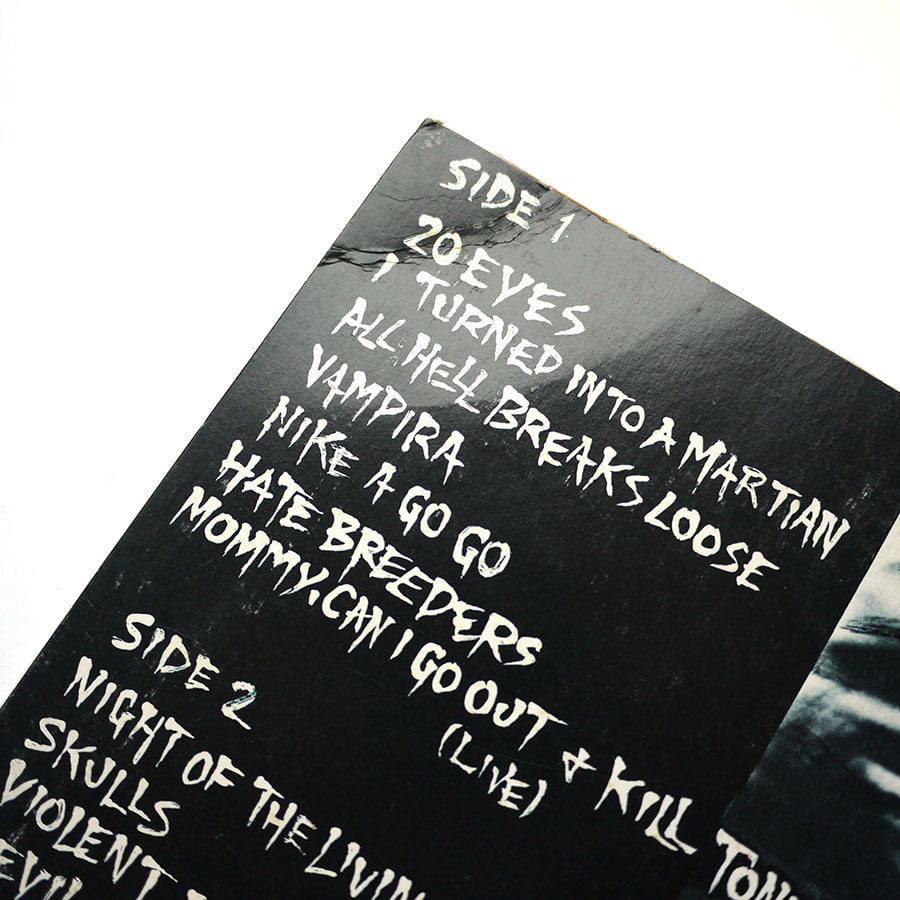 SIDE 1
20 EYES
I TURNED INTO A MARTIAN
ALL HELL BREAKS LOOSE
VAMPIRA
NIKE A GO GO
HATE BREEDERS
MOMMY, CAN I GO OUT & KILL
(LIVE)
SIDE 2
NIGHT OF THE
SKULLS
VIOLENT